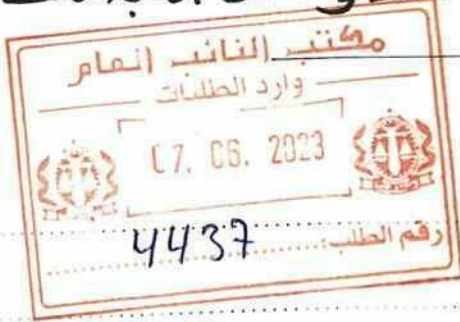 مكتب النائب العام
وارد الطلبات
07. 06. 2023
رقم الطلب: 4437